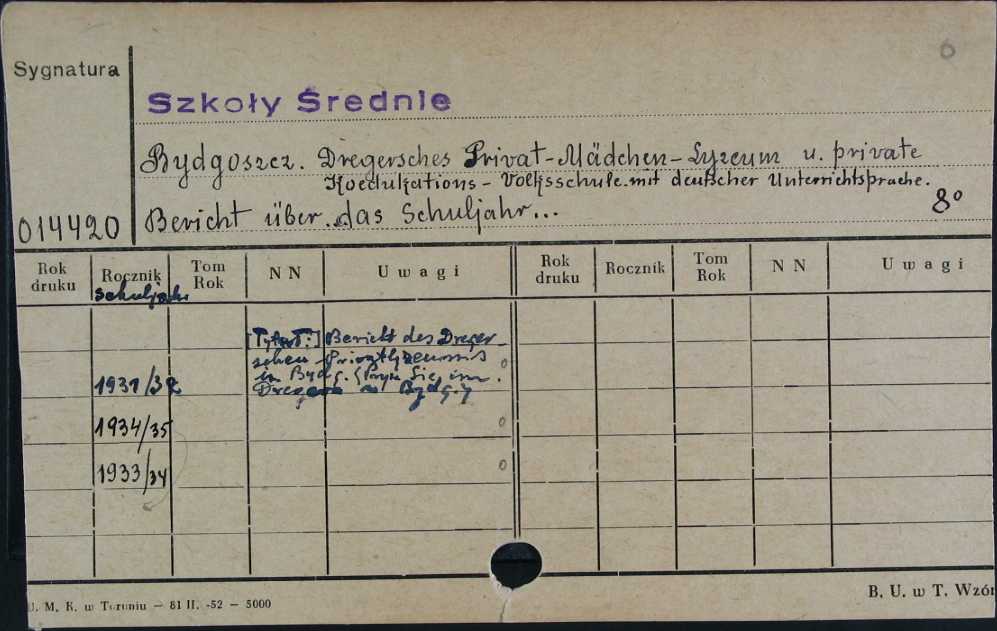 6
Sygnatura
Szkoły Średnie
Bydgoszcz. Dregersches Privat-Mädchen-Lyzeum u. private
Koedukations-Volksschule mit deutscher Unterrichtsprache.
014420 Bericht über das Schuljahr... 8°
Rok druku Rocznik Tom Rok NN Uwagi Rok druku Rocznik Tom Rok NN Uwagi
Schuljahr
[Tytuł:] Bericht des Dreger
schen Privatlyzeums 0
in Bydg.
1931/32 Dregera w Bydg.
1934/35 0
1933/34 0
U. M. K. w Toruniu — 81 II. -52 — 5000
B. U. w T. Wzór